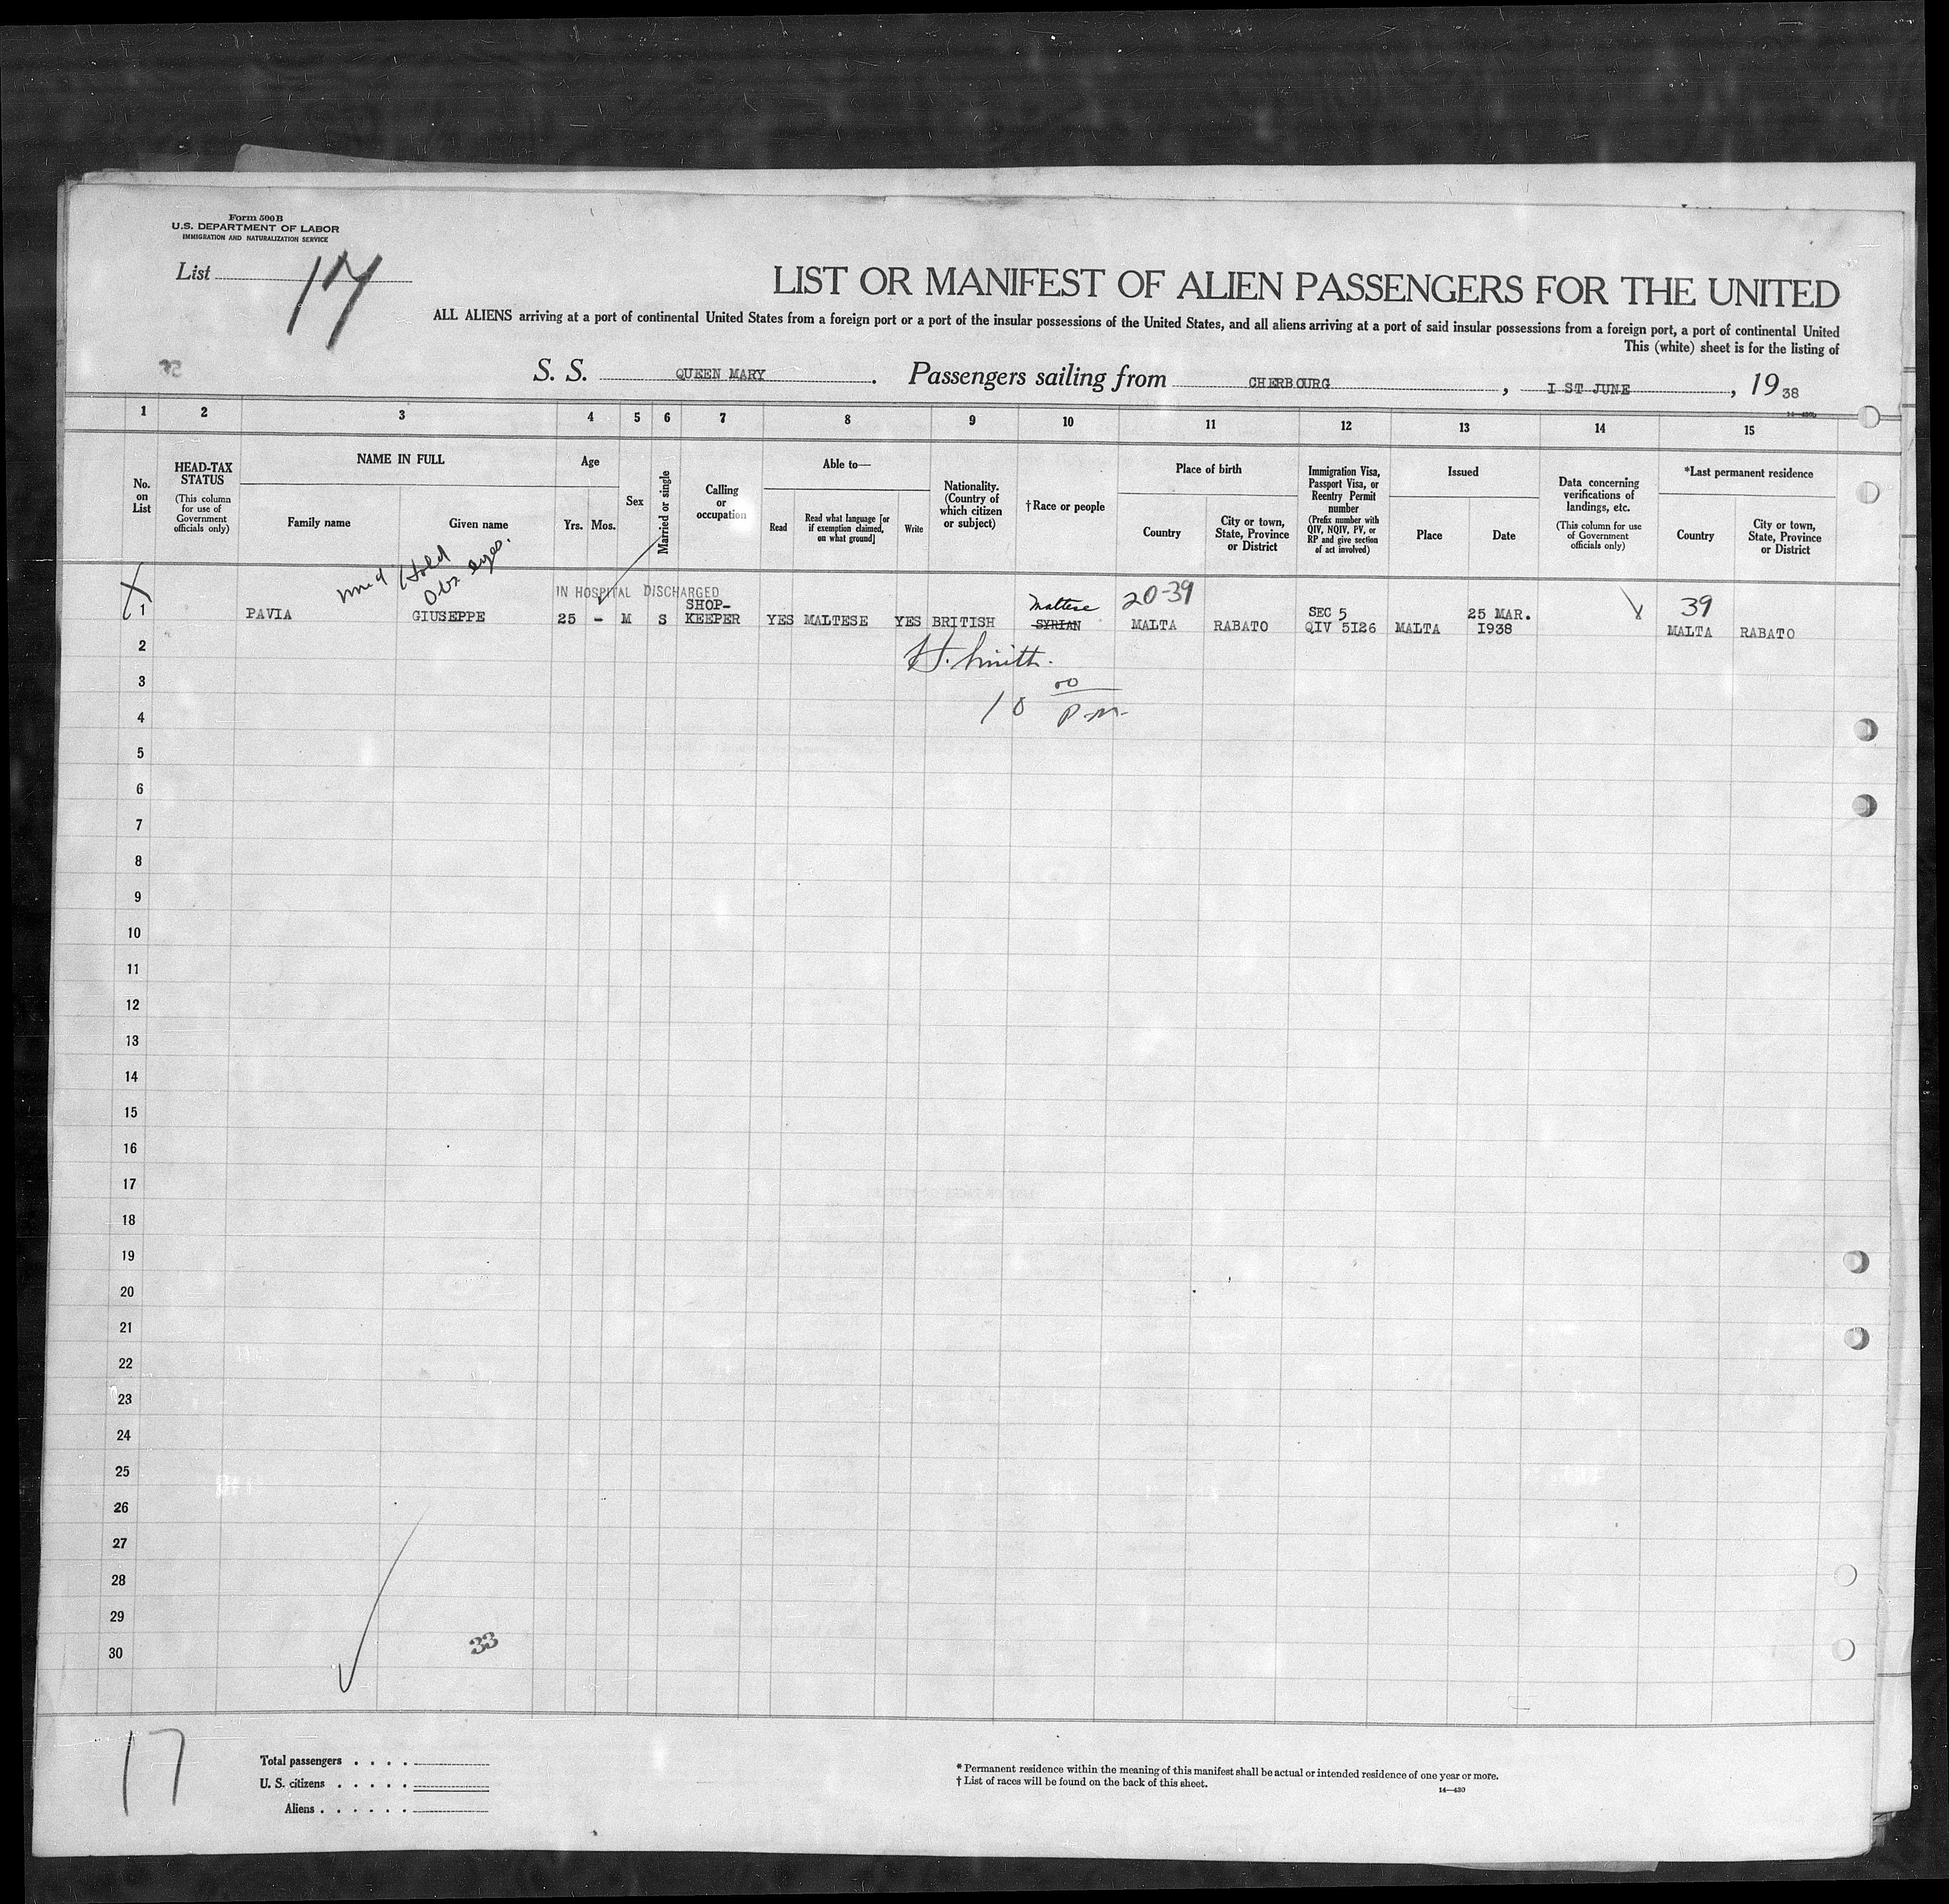 Form 500B
U.S. DEPARTMENT OF LABOR
IMMIGRATION AND NATURALIZATION SERVICE
List 17
LIST OR MANIFEST OF ALIEN PASSENGERS FOR THE UNITED
ALL ALIENS arriving at a port of continental United States from a foreign port or a port of the insular possessions of the United States, and all aliens arriving at a port of said insular possessions from a foreign port, a port of continental United
This (white) sheet is for the listing of
S. S. QUEEN MARY. Passengers sailing from CHERBOURG, I ST JUNE, 1938
14—430
1 2 3 4 5 6 7 8 9 10 11 12 13 14 15
No. on List
HEAD-TAX STATUS
(This column for use of Government officials only)
NAME IN FULL
Family name
Given name
Age
Yrs. Mos.
Sex
Married or single
Calling or occupation
Able to—
Read
Read what language [or if exemption claimed, on what ground]
Write
Nationality. (Country of which citizen or subject)
†Race or people
Place of birth
Country
City or town, State, Province or District
Immigration Visa, Passport Visa, or Reentry Permit number
(Prefix number with QIV, NQIV, PV, or RP and give section of act involved)
Issued
Place
Date
Data concerning verifications of landings, etc.
(This column for use of Government officials only)
*Last permanent residence
Country
City or town, State, Province or District
Hold
eyes.
IN HOSPITAL DISCHARGED
Maltese 20-39 39
1 PAVIA GIUSEPPE 25 - M S SHOP-KEEPER YES MALTESE YES BRITISH SYRIAN MALTA RABATO SEC 5 QIV 5I26 MALTA 25 MAR. I938 MALTA RABATO
2
H. Smith.
3
10 00 P.M.
4
5
6
7
8
9
10
11
12
13
14
15
16
17
18
19
20
21
22
23
24
25
26
27
28
29
33
30
17
Total passengers . . . .
U. S. citizens . . . . .
Aliens . . . . . .
* Permanent residence within the meaning of this manifest shall be actual or intended residence of one year or more.
† List of races will be found on the back of this sheet.
14—430